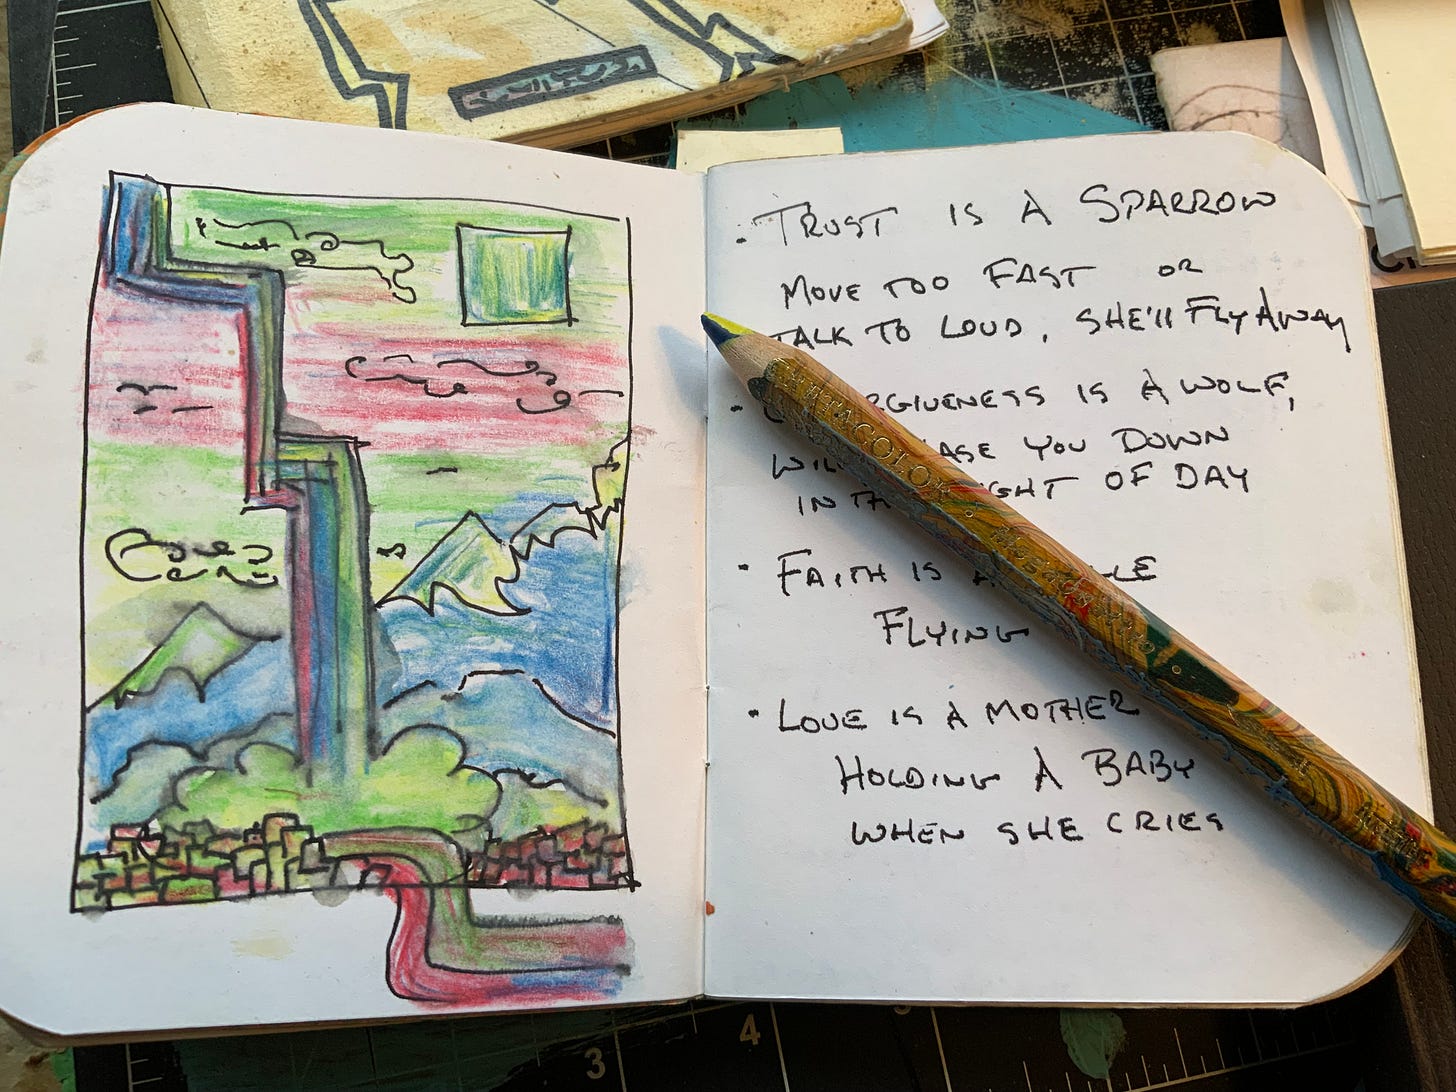 • TRUST IS A SPARROW
MOVE TOO FAST OR
TALK TO LOUD, SHE'll FLY AWAY
• IS A WOLF,
YOU DOWN
OF DAY
• FAITH IS
FLYING
• LOVE IS A MOTHER
HOLDING A BABY
WHEN SHE CRIES
3
4